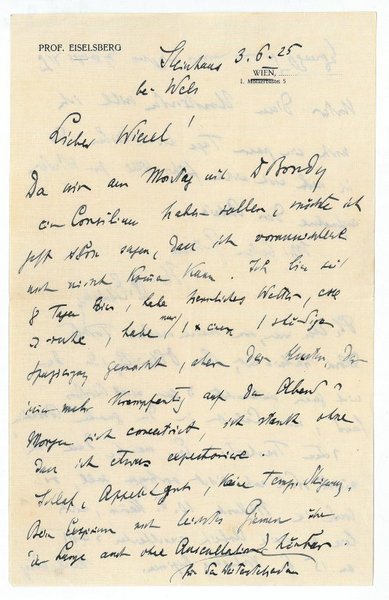 PROF. EISELSBERG
Steinhaus 3.6.25
WIEN,
I. Mölkerbastei 5
bei Wels
Lieber Wiesel!
Da wir am Montag mit Dr Bondy
ein Consilium haben sollen, möchte ich
jetzt schon sagen, dass ich voraussichtlich
noch nicht kommen kann. Ich bin seit
8 Tagen hier, habe herrliches Wetter,
Ruhe, habe nur 1 x eine 1 stündige
Spaziergang gemacht, aber der Husten der
immer mehr krampfartig auf den Abend &
Morgen sich concentrirt, ist stark ohne
dass ich etwas expectoriere.
Schlaf, Appetit gut, keine Temp. Steigung.
Beim Exspirium noch leichtes Giemen über
der Lunge auch ohne Auscultation hörbar
für die